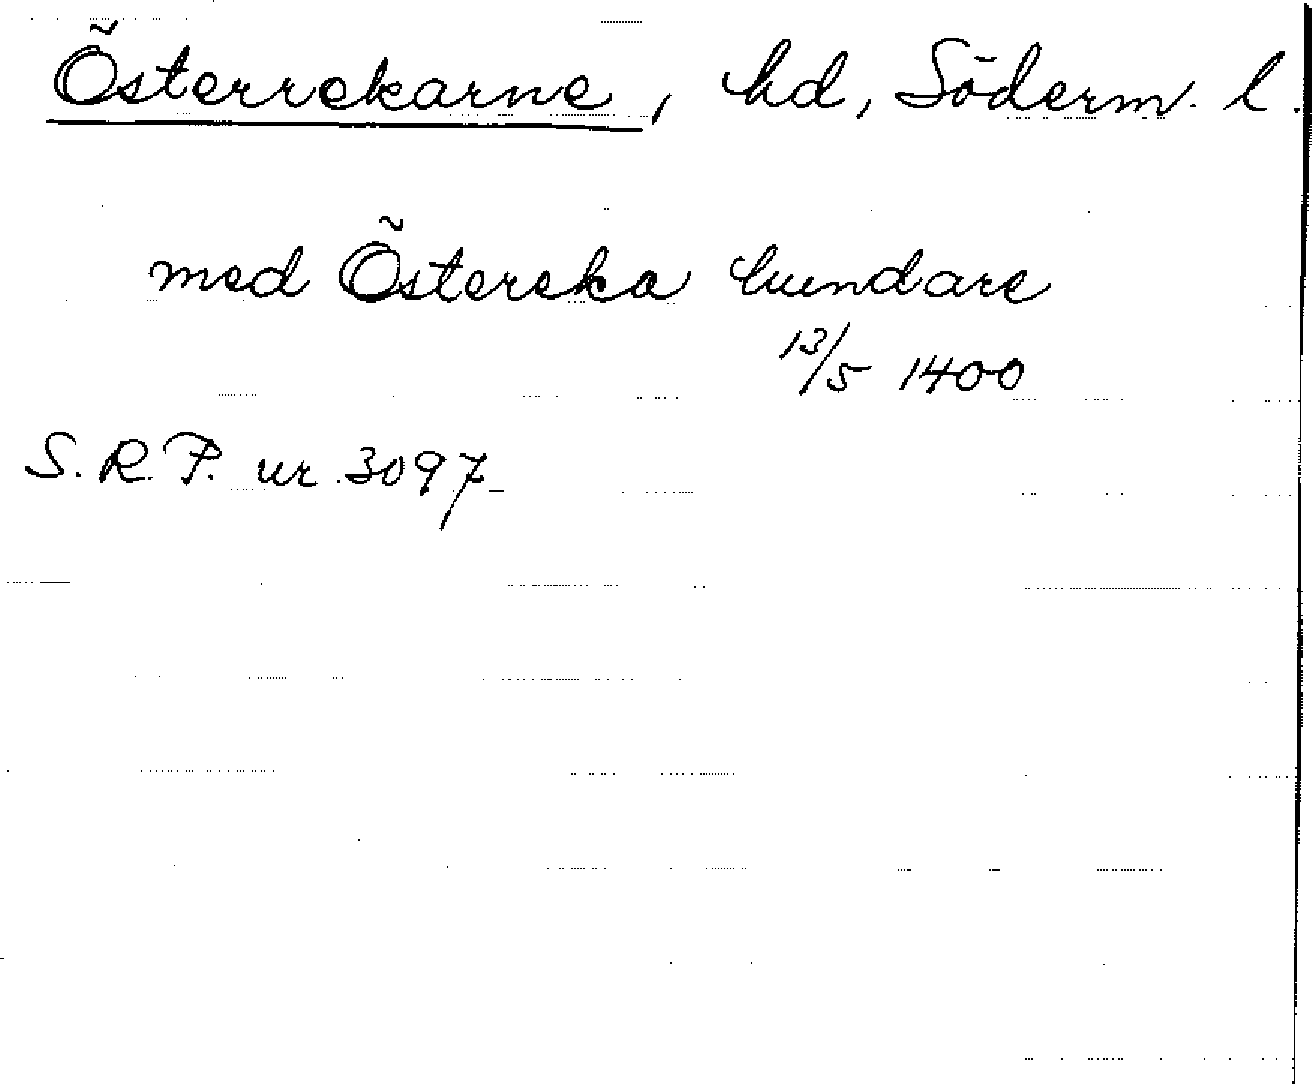 Österrekarne, hd, Söderm. l.
med Östereka hundare
13/5 1400
S.R.P. nr. 3097